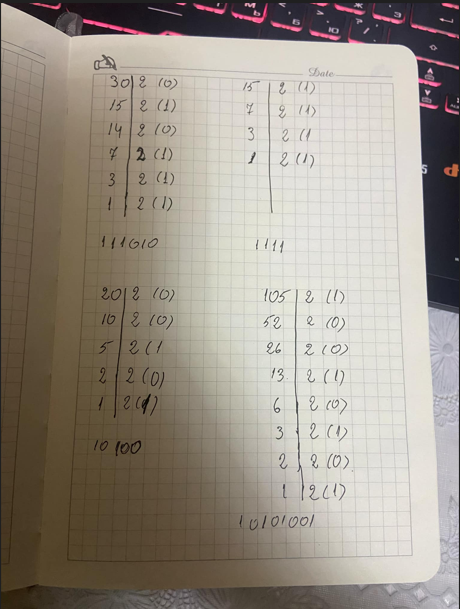 Date
30 2 (0)
15 2 (1)
14 2 (0)
7 2 (1)
3 2 (1)
1 2 (1)
111010
15 2 (1)
7 2 (1)
3 2 (1
1 2 (1)
1111
20 2 (0)
10 2 (0)
5 2 (1
2 2 (0)
1 2 (1)
10100
105 2 (1)
52 2 (0)
26 2 (0)
13. 2 (1)
6 2 (0)
3 2 (1)
2 2 (0)
1 2 (1)
10101001